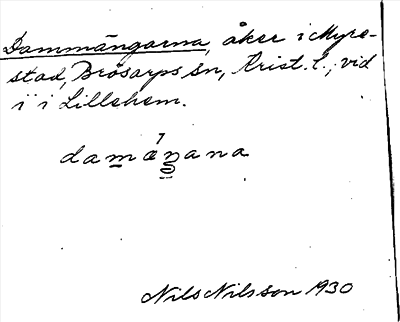 Dammängarna, åker i Myre-
stad, Brösarps sn, Krist. l.; vid
ï i Lillehem.
damæŋana
Nils Nilsson 1930